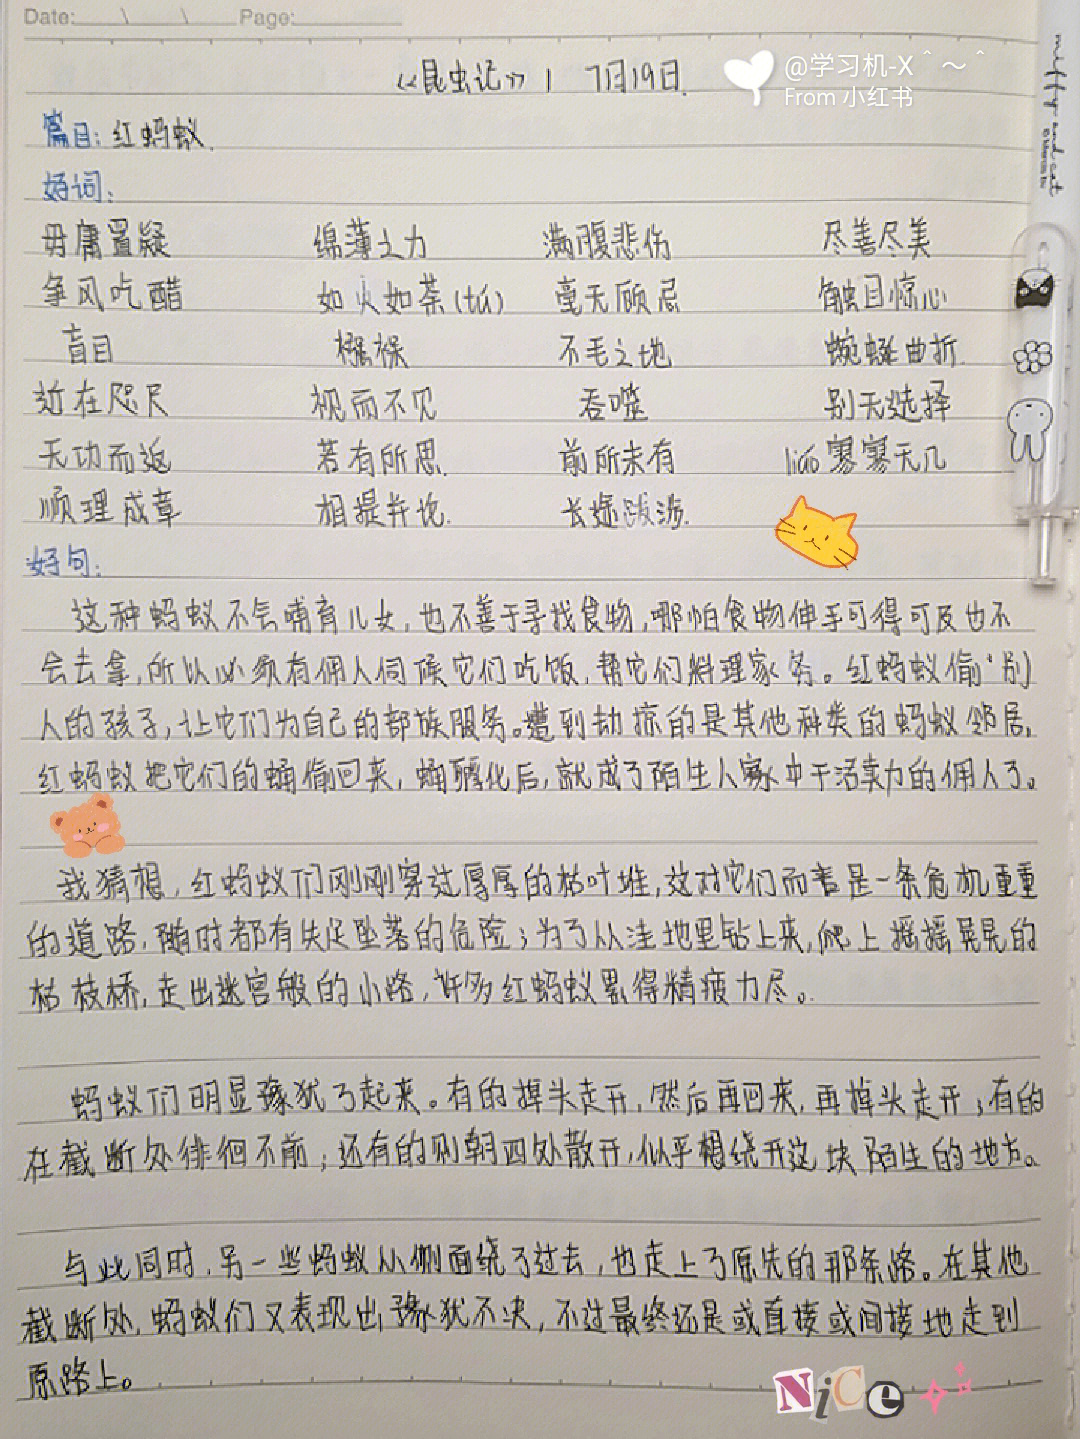 Date: \ \ Page:
《昆虫记》1 7月19日.
@学习机-X＾～＾
From 小红书
miffy and cat
篇目:红蚂蚁.
好词:
毋庸置疑 绵薄之力 满腹悲伤 尽善尽美
争风吃醋 如火如荼(tú) 毫无顾忌 触目惊心
盲目 襁褓 不毛之地 蜿蜒曲折.
近在咫尺 视而不见 吞噬 别无选择
无功而返 若有所思. 前所未有 liáo寥寥无几
顺理成章 相提并论. 长途跋涉.
好句:
这种蚂蚁不会哺育儿女,也不善于寻找食物,哪怕食物伸手可得可及也不
会去拿,所以必须有佣人伺候它们吃饭,帮它们料理家务。红蚂蚁偷别
人的孩子,让它们为自己的部族服务。遭到劫掠的是其他种类的蚂蚁邻居,
红蚂蚁把它们的蛹偷回来,蛹孵化后,就成了陌生人家中干活卖力的佣人了。
我猜想,红蚂蚁们刚刚穿过厚厚的枯叶堆,这对它们而言是一条危机重重
的道路,随时都有失足坠落的危险;为了从洼地里钻上来,爬上摇摇晃晃的
枯枝桥,走出迷宫般的小路,许多红蚂蚁累得精疲力尽。
蚂蚁们明显豫犹了起来。有的掉头走开,然后再回来,再掉头走开;有的
在截断处徘徊不前;还有的则朝四处散开,似乎想绕开这块陌生的地方。
与此同时,另一些蚂蚁从侧面绕了过去,也走上了原先的那条路。在其他
截断处,蚂蚁们又表现出豫犹不决,不过最终还是或直接或间接地走到
原路上。
NiCe